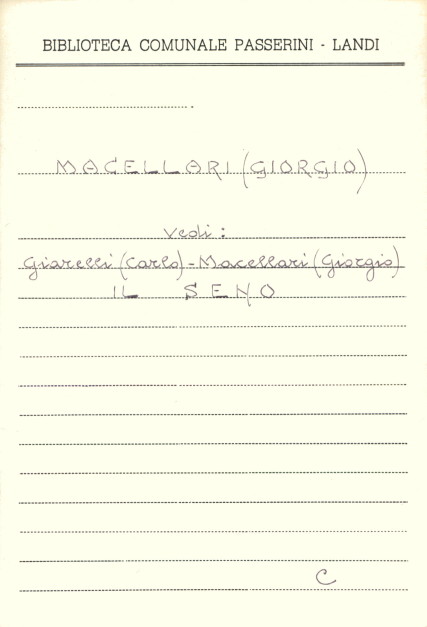 BIBLIOTECA COMUNALE PASSERINI - LANDI
MACELLARI (GIORGIO)
Vedi:
Giarelli (Carlo) - Macellari (Giorgio)
IL SENO
C